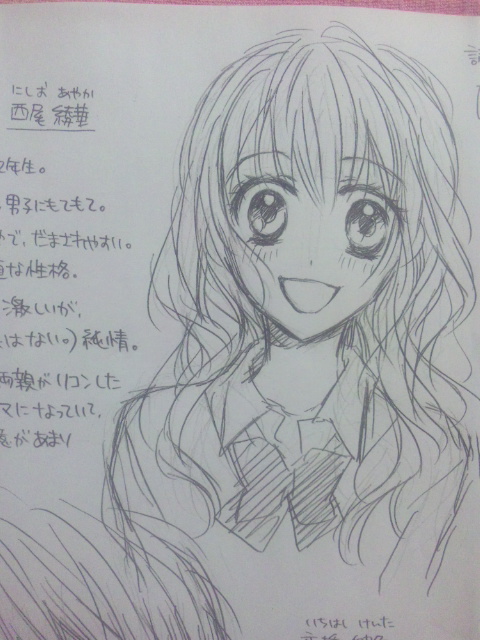 にしお あやか
西尾 綾華
2年生。
男子にもてもて。
で、だまされやすい。
な性格。
激しいが、
はない。)純情。
両親がリコンした
マになっていて、
があまり
いちはし けんた